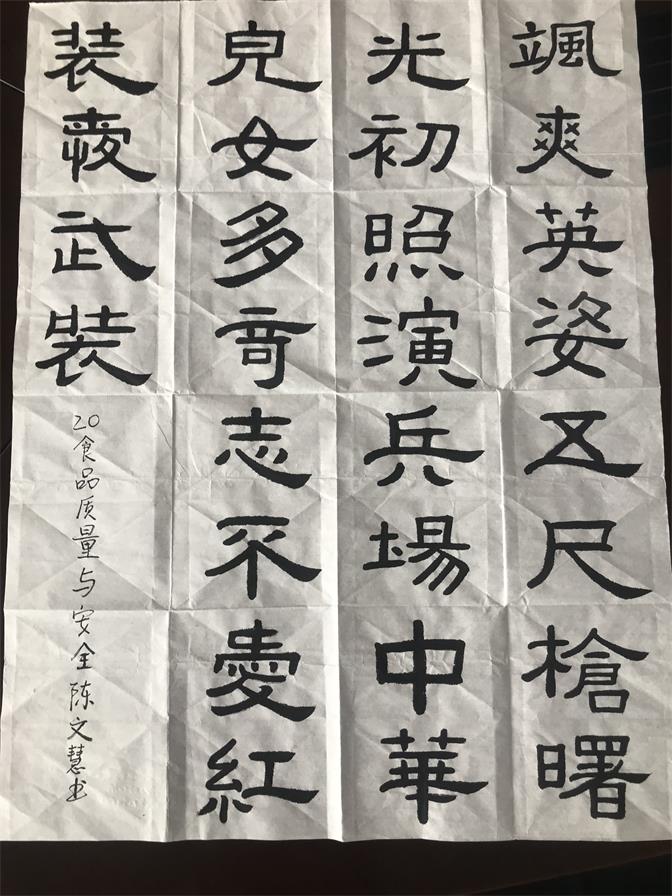 颯爽英姿五尺槍曙
光初照演兵場中華
兒女多奇志不愛紅
装愛武裝
20食品质量与安全陈文慧书